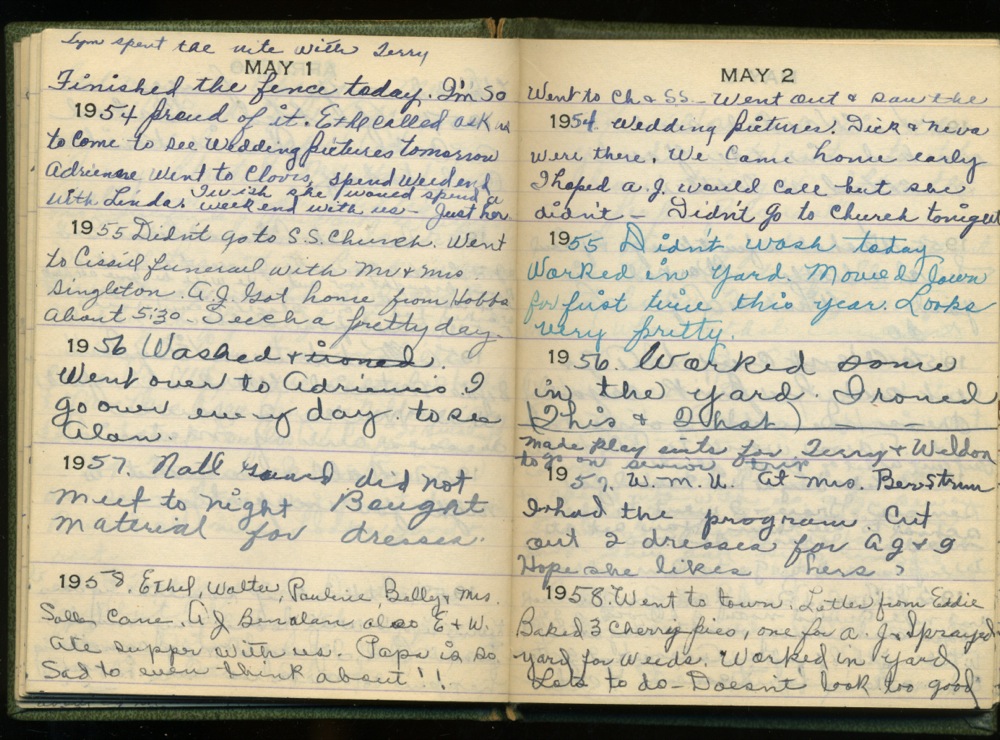 Lynn spent the nite with Terry
MAY 1
Finished the fence today. I'm so
1954 proud of it. Ethel called ask us
to come to see Wedding pictures tomorrow
Adrienne went to Clovis, spend weekend
with Linda. I wish she would spend a
weekend with us - Just her.
1955 Didn't go to S.S. Church. Went
to Cissie funeral with Mr & Mrs
Singleton. A.J. Got home from Hobbs
about 5:30. Such a pretty day.
1956 Washed & ironed.
Went over to Adriennes. I
go over every day to see
Alan.
1957. Natl Guard did not
meet to night Bought
material for dresses.
1958. Ethel, Walter, Pauline, Belly & Mrs.
came. A J Ben alan also E & W.
ate supper with us. Papa is so
Sad to even think about!!
MAY 2
Went to Ch & SS - Went out & saw the
1954 Wedding pictures. Dick & Neva
were there. We came home early
I hoped A.J. would call but she
didn't - Didn't Go to Church tonight
1955 Didn't wash today
Worked in yard. Mowed down
for first time this year. Looks
very pretty.
1956. Worked some
in the yard. Ironed
(This & That)
made play suits for Terry & Weldon
to go on senior trip
1957. W.M.U. at Mrs. Berstrum
I had the program. Cut
out 2 dresses for AJ & g
Hope she likes hers?
1958. Went to town. Letter from Eddie
Baked 3 Cherry pies, one for A.J. Sprayed
yard for weeds. Worked in yard
Lots to do - Doesn't look too good